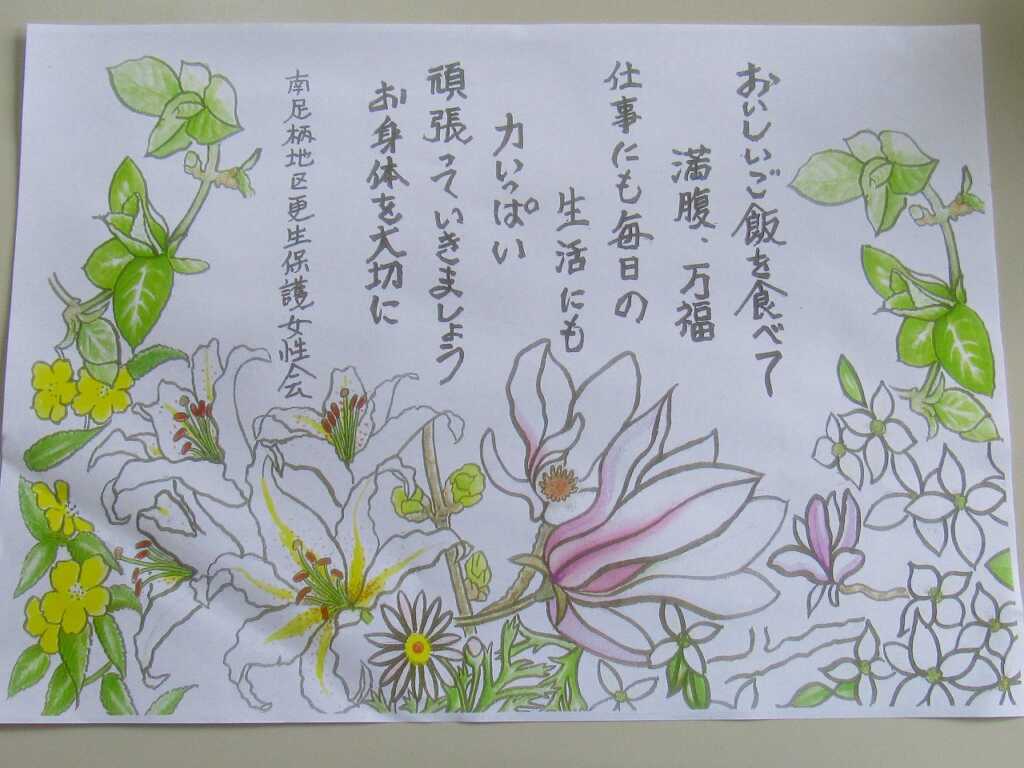 おいしいご飯を食べて
満腹、万福
仕事にも毎日の
生活にも
力いっぱい
頑張っていきましょう
お身体を大切に
南足柄地区更生保護女性会